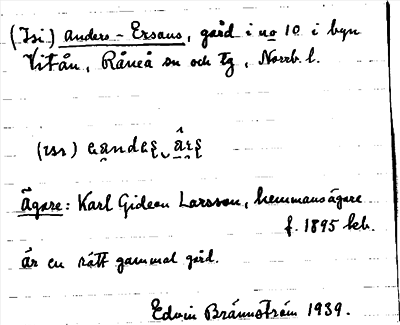 (Isi) Anders-Ersans, gård i no 10 i byn
Vitån, Råneå sn och tg, Norrb. l.
Ägare: Karl Gideon Larsson, hemmansägare
f. 1895 hb.
är en rätt gammal gård.
Edvin Brännström 1939.